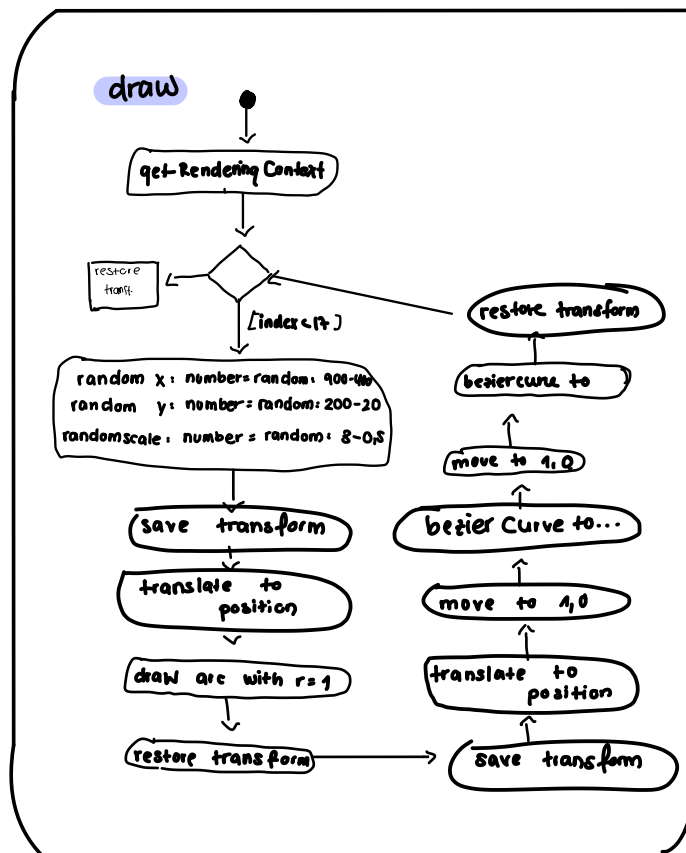 draw
get Rendering Context
restore
transf.
[index<17]
random x: number= random: 900-400
random y: number= random: 200-20
randomscale: number = random: 8-0,5
save transform
translate to
position
draw arc with r=1
restore transform
save transform
translate to
position
move to 1,0
bezier Curve to...
move to 1,0
beziercurve to
restore transform